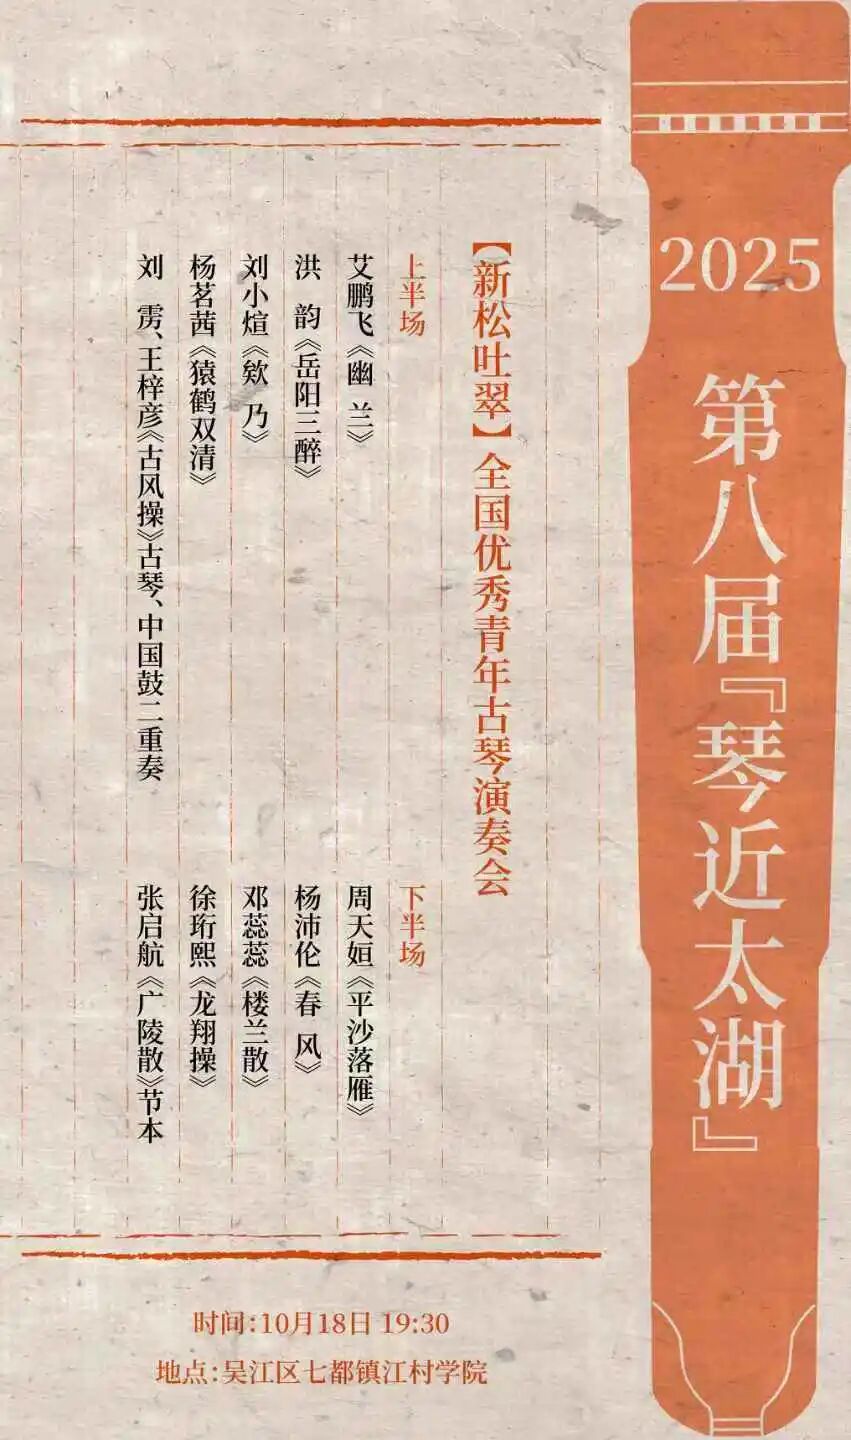 2025
第八届『琴近太湖』
【新松吐翠】全国优秀青年古琴演奏会
上半场
艾鹏飞《幽 兰》
洪 韵《岳阳三醉》
刘小煊《欸 乃》
杨茗茜《猿鹤双清》
刘 雳、王梓彦《古风操》古琴、中国鼓二重奏
下半场
周天姮《平沙落雁》
杨沛伦《春 风》
邓蕊蕊《楼兰散》
徐珩熙《龙翔操》
张启航《广陵散》节本
时间:10月18日 19:30
地点:吴江区七都镇江村学院